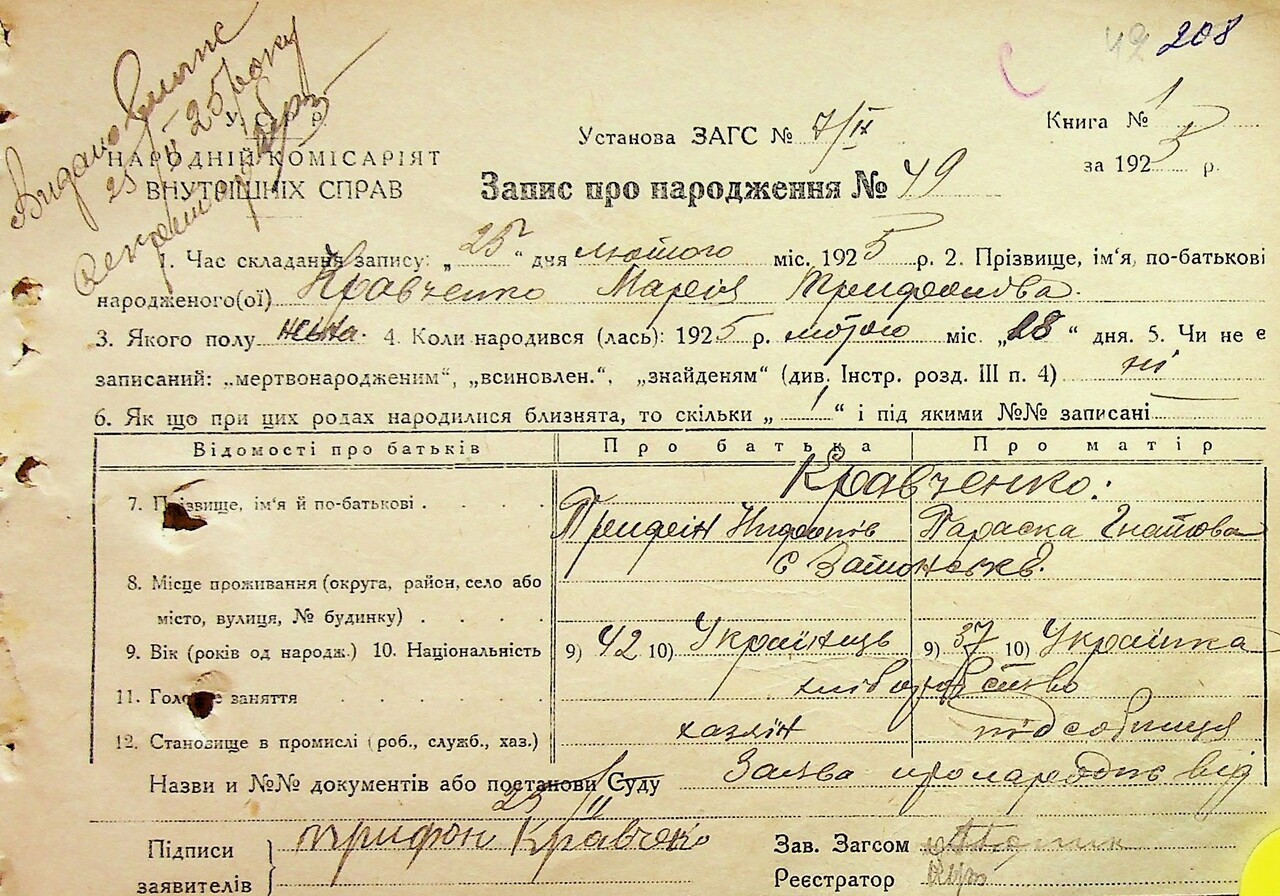 42 208
Видано випис
25/II 25 року
У. С. Р. Р.
НАРОДНІЙ КОМІСАРІЯТ
ВНУТРІШНІХ СПРАВ
Установа ЗАГС № 7/IV
Книга № 1
за 1925 р.
Запис про народження № 49
1. Час складання запису: „25“ дня лютого міс. 1925 р. 2. Прізвище, ім'я, по-батькові
народженого(ої) Кравченко Марія Трифонова.
3. Якого полу жіноч. 4. Коли народився (лась): 1925 р. лютого міс. „18“ дня. 5. Чи не є
записаний: „мертвонародженим“, „всиновлен.“, „знайденям“ (див. Інстр. розд. III п. 4) ні
6. Як що при цих родах народилися близнята, то скільки „1“ і під якими №№ записані
Відомості про батьків Про батька Про матір
Кравченко.
7. Прізвище, ім'я й по-батькові . . . .
Трифон Параска Гнатова
8. Місце проживання (округа, район, село або
місто, вулиця, № будинку) . . . .
9. Вік (років од народж.) 10. Національність 9) 42 10) Українець 9) 37 10) Українка
11. Головне заняття . . . . хліборобство
12. Становище в промислі (роб., служб., хаз.) хазяїн підсобниця
Назви и №№ документів або постанови Суду Заява про народжє від
25/II
Підписи
заявителів
трифон Кравчеко
Зав. Загсом
Реєстратор